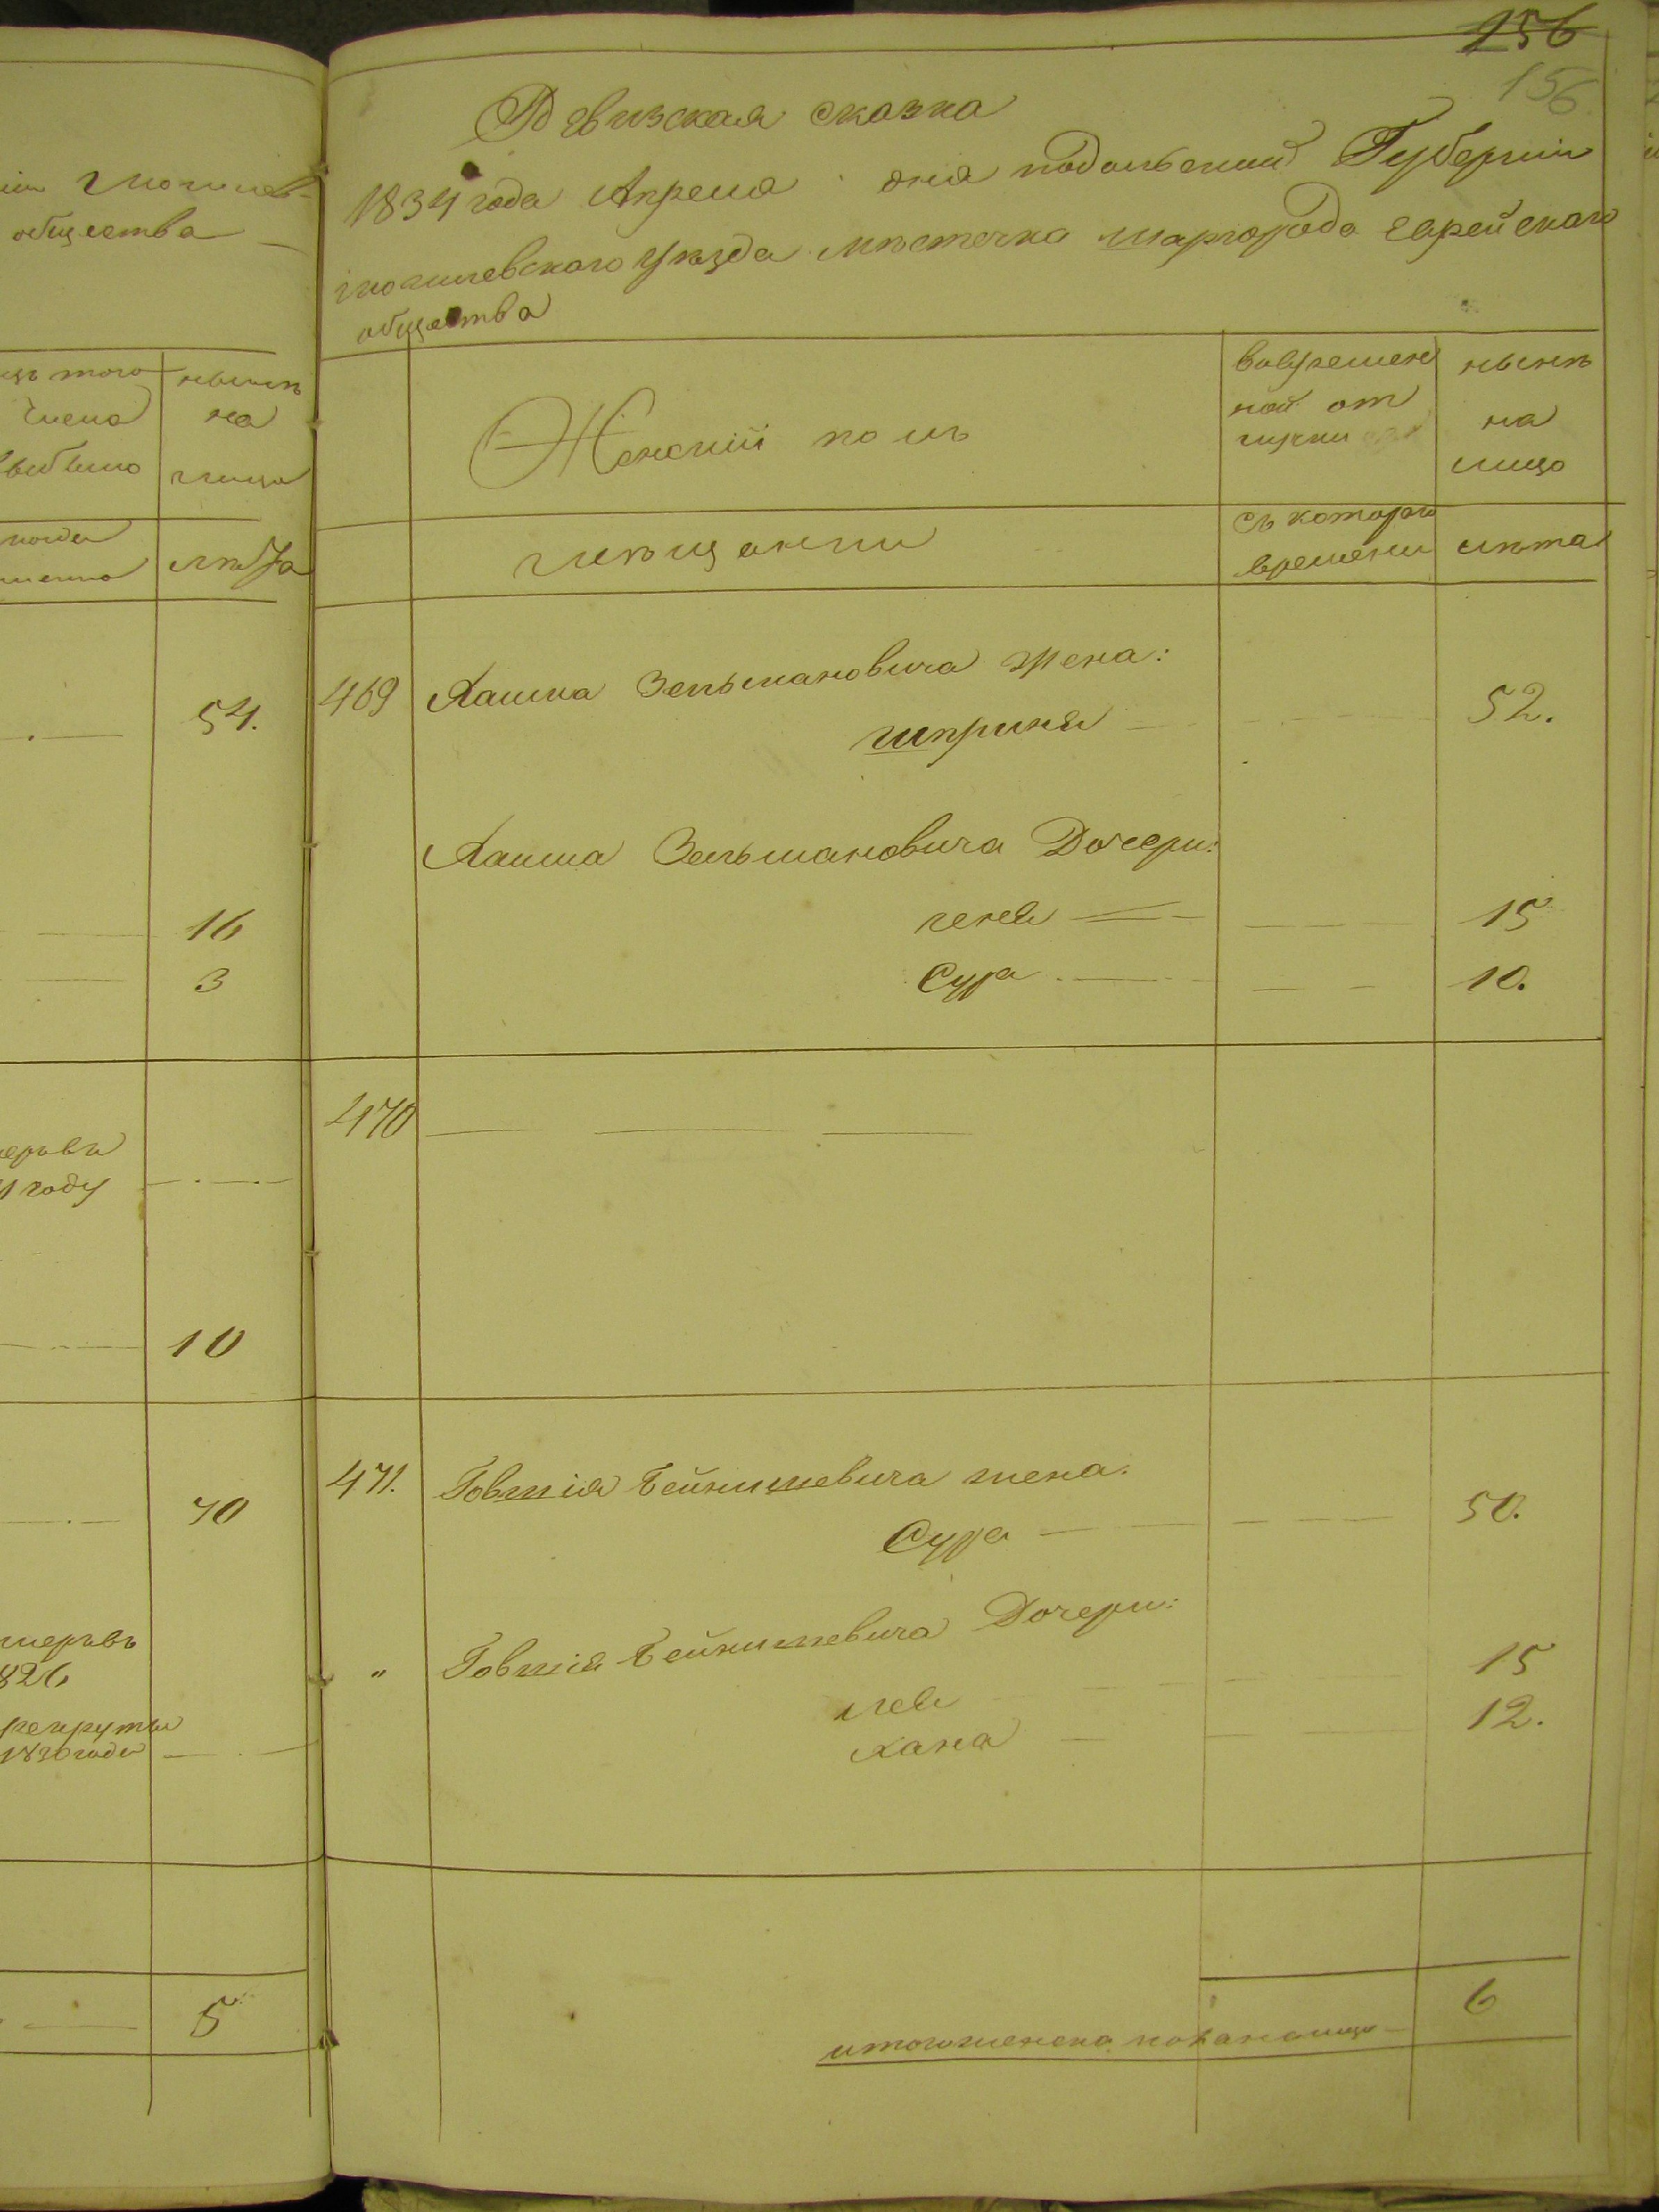 156
156
Ревизская сказка
1834 года Апреля дня подольской Губернии
могилевского уезда мѣстечка шаргорода еврейскаго
общества
Женский полъ
вовремен
ной от
лучки
нынѣ
на
лицо
мѣщанки
съ котораго
времени
лѣта
469 Хаима Зельмановича жена:
шприня 52.
Хаима Зельмановича Дочери:
геня 15
Сура 10.
470
471. Говшія Бейнишевича жена:
Сура 50.
" Говшія Бейнишевича Дочери:
лея 15
хана 12.
итого женска пола налицо 6
могилев-
общества
того
нынѣ
на
лицо
лѣта
54.
16
3
году
10
70
умеръ въ
826
рекруты
1830 года
5